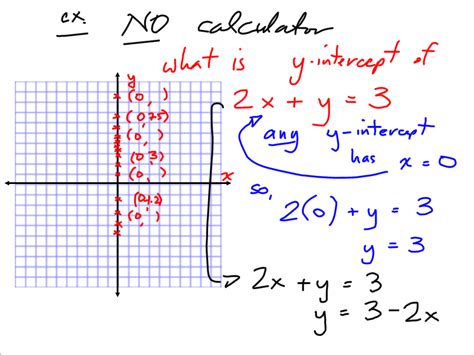 ex. NO calculator
what is y-intercept of
2x + y = 3
any y-intercept
has x = 0
so,
2(0) + y = 3
y = 3
2x + y = 3
y = 3 - 2x
y
x
(0, )
(0, 7.5)
(0, )
(0, 3)
(0, )
(0, )